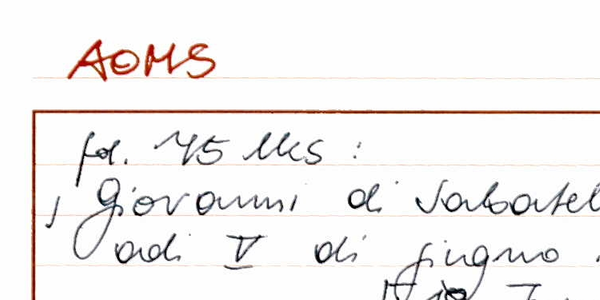 AOMS
fol. 45
Giovanni di Salvatel
adi V di giugno